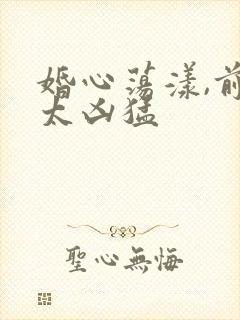 婚心荡漾,前
太凶猛
聖心無悔